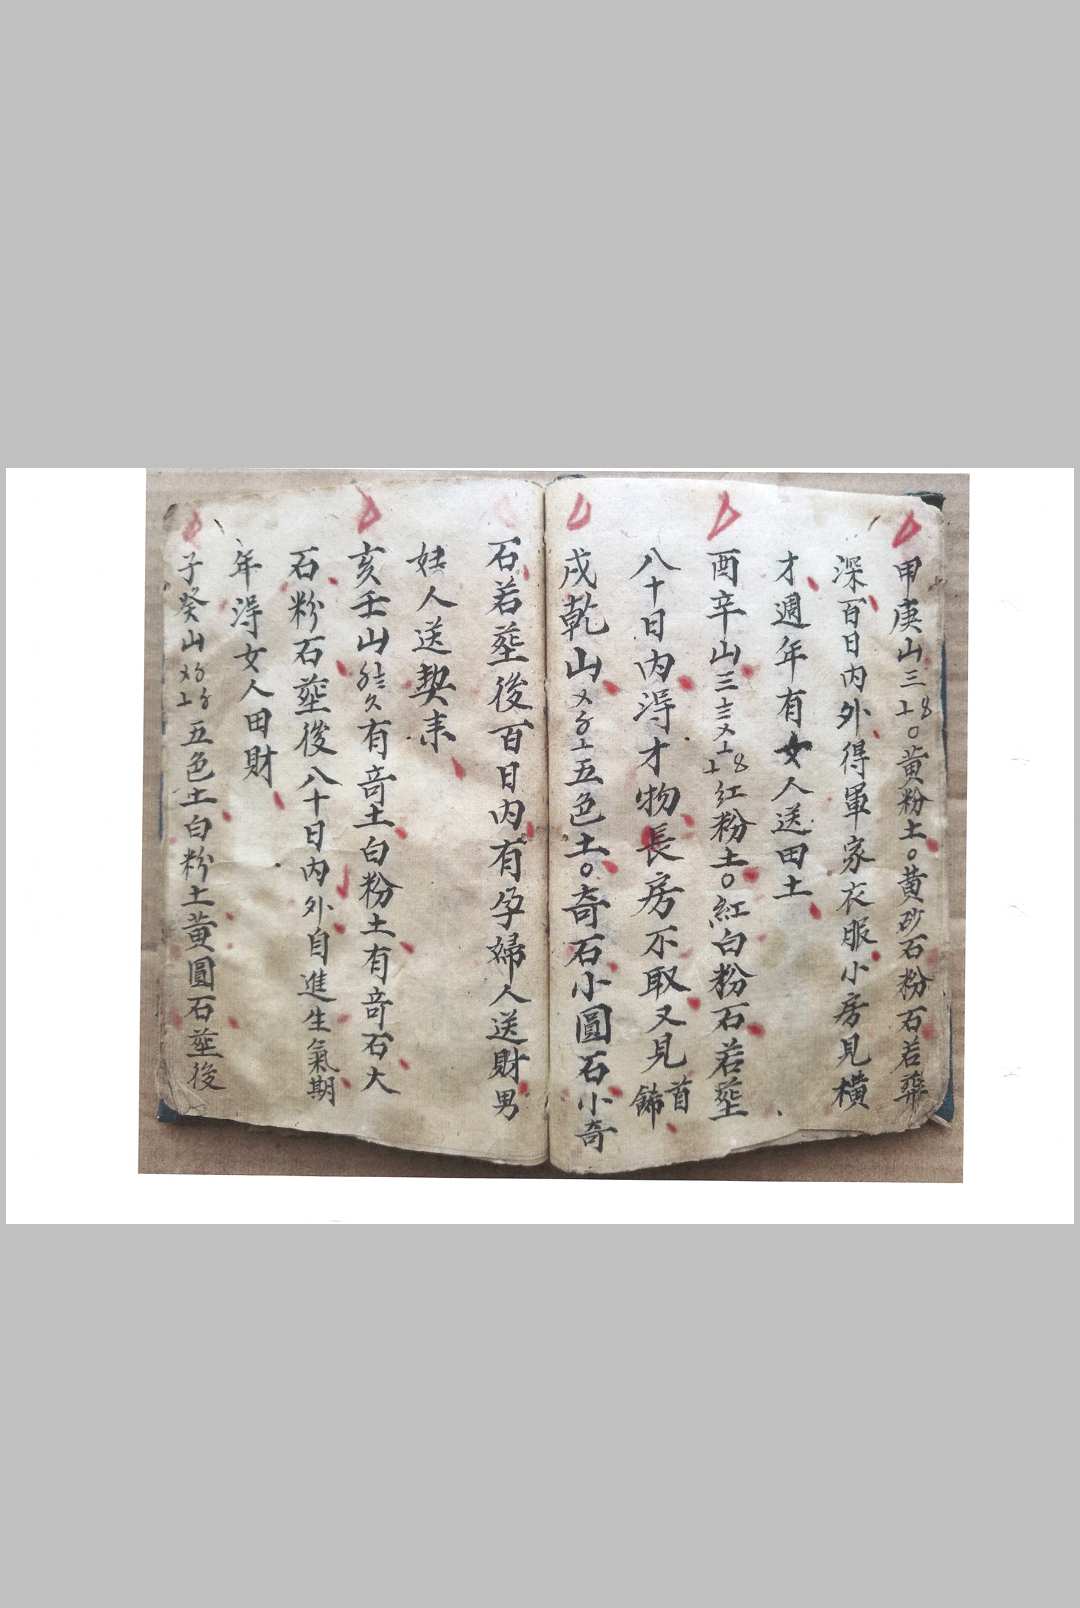 甲庚山三〦〸〇黃粉土〇黃砂石粉石若葬
深百日内外得軍家衣服小房見橫
才週年有女人送田土
酉辛山三〨〤〦〸紅粉土〇紅白粉石若塟
八十日内淂才物長房不取又見首飾
戌乾山〤〥〦五色土〇奇石小圓石小奇
石若塟後百日内有孕婦人送財男
人送契来
亥壬山有奇土白粉土有奇石大
石粉石塟後八十日内外自進生氣期
年淂女人田財
子癸山五色土白粉土黃圓石塟後